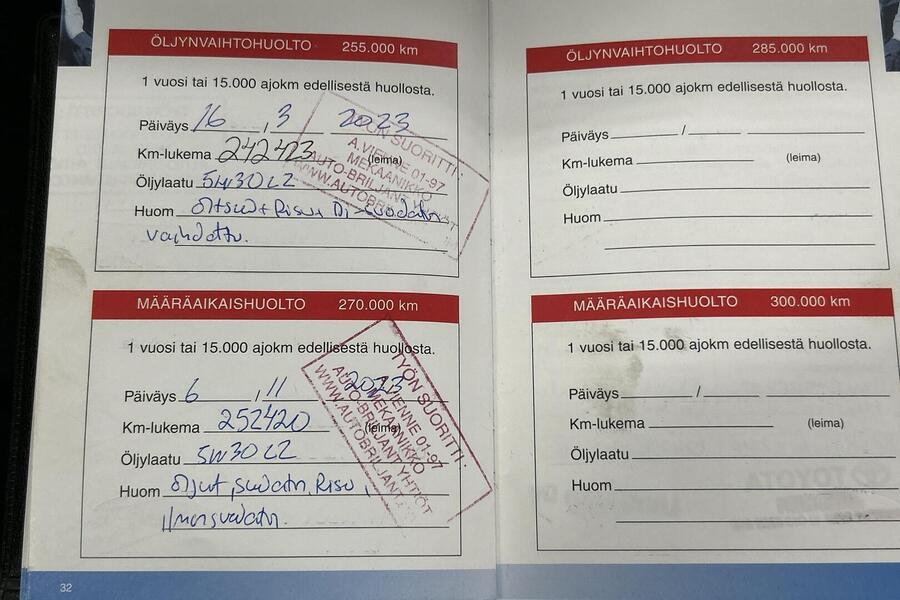 ÖLJYNVAIHTOHUOLTO 255.000 km
1 vuosi tai 15.000 ajokm edellisestä huollosta.
Päiväys 16 / 3 2023
Km-lukema 242423 (leima)
Öljylaatu 5W30 C2
Huom
vaihdettu.
TYÖN SUORITTI:
A.VIENNE 01-97
MEKAANIKKO
AUTO-BRILJANT YHTIÖT
MÄÄRÄAIKAISHUOLTO 270.000 km
1 vuosi tai 15.000 ajokm edellisestä huollosta.
Päiväys 6 / 11 2023
Km-lukema 252420 (leima)
Öljylaatu 5W30 C2
Huom Öljyt, suodatin, Risu,
ilmansuodatin.
TYÖN SUORITTI:
A.VIENNE 01-97
MEKAANIKKO
AUTO-BRILJANT YHTIÖT
WWW.AUTOBRILJANT
32
ÖLJYNVAIHTOHUOLTO 285.000 km
1 vuosi tai 15.000 ajokm edellisestä huollosta.
Päiväys /
Km-lukema (leima)
Öljylaatu
Huom
MÄÄRÄAIKAISHUOLTO 300.000 km
1 vuosi tai 15.000 ajokm edellisestä huollosta.
Päiväys /
Km-lukema (leima)
Öljylaatu
Huom